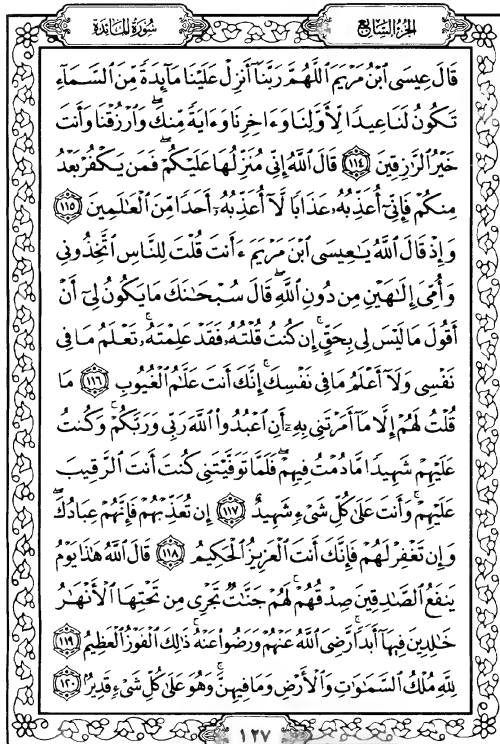 سُورَةُ المَائِدَة الجُزْءُ السَّابِع
قَالَ عِيسَى ٱبْنُ مَرْيَمَ ٱللَّهُمَّ رَبَّنَآ أَنزِلْ عَلَيْنَا مَآئِدَةً مِّنَ ٱلسَّمَآءِ
تَكُونُ لَنَا عِيدًا لِّأَوَّلِنَا وَءَاخِرِنَا وَءَايَةً مِّنكَۖ وَٱرْزُقْنَا وَأَنتَ
خَيْرُ ٱلرَّٰزِقِينَ ١١٤ قَالَ ٱللَّهُ إِنِّى مُنَزِّلُهَا عَلَيْكُمْۖ فَمَن يَكْفُرْ بَعْدُ
مِنكُمْ فَإِنِّىٓ أُعَذِّبُهُۥ عَذَابًا لَّآ أُعَذِّبُهُۥٓ أَحَدًا مِّنَ ٱلْعَٰلَمِينَ ١١٥
وَإِذْ قَالَ ٱللَّهُ يَٰعِيسَى ٱبْنَ مَرْيَمَ ءَأَنتَ قُلْتَ لِلنَّاسِ ٱتَّخِذُونِى
وَأُمِّىَ إِلَٰهَيْنِ مِن دُونِ ٱللَّهِۖ قَالَ سُبْحَٰنَكَ مَا يَكُونُ لِىٓ أَنْ
أَقُولَ مَا لَيْسَ لِى بِحَقٍّۚ إِن كُنتُ قُلْتُهُۥ فَقَدْ عَلِمْتَهُۥۚ تَعْلَمُ مَا فِى
نَفْسِى وَلَآ أَعْلَمُ مَا فِى نَفْسِكَۚ إِنَّكَ أَنتَ عَلَّٰمُ ٱلْغُيُوبِ ١١٦ مَا
قُلْتُ لَهُمْ إِلَّا مَآ أَمَرْتَنِى بِهِۦٓ أَنِ ٱعْبُدُوا۟ ٱللَّهَ رَبِّى وَرَبَّكُمْۚ وَكُنتُ
عَلَيْهِمْ شَهِيدًا مَّا دُمْتُ فِيهِمْۖ فَلَمَّا تَوَفَّيْتَنِى كُنتَ أَنتَ ٱلرَّقِيبَ
عَلَيْهِمْۚ وَأَنتَ عَلَىٰ كُلِّ شَىْءٍ شَهِيدٌ ١١٧ إِن تُعَذِّبْهُمْ فَإِنَّهُمْ عِبَادُكَۖ
وَإِن تَغْفِرْ لَهُمْ فَإِنَّكَ أَنتَ ٱلْعَزِيزُ ٱلْحَكِيمُ ١١٨ قَالَ ٱللَّهُ هَٰذَا يَوْمُ
يَنفَعُ ٱلصَّٰدِقِينَ صِدْقُهُمْۚ لَهُمْ جَنَّٰتٌ تَجْرِى مِن تَحْتِهَا ٱلْأَنْهَٰرُ
خَٰلِدِينَ فِيهَآ أَبَدًاۚ رَّضِىَ ٱللَّهُ عَنْهُمْ وَرَضُوا۟ عَنْهُۚ ذَٰلِكَ ٱلْفَوْزُ ٱلْعَظِيمُ ١١٩
لِلَّهِ مُلْكُ ٱلسَّمَٰوَٰتِ وَٱلْأَرْضِ وَمَا فِيهِنَّۚ وَهُوَ عَلَىٰ كُلِّ شَىْءٍ قَدِيرٌۢ ١٢٠
١٢٧